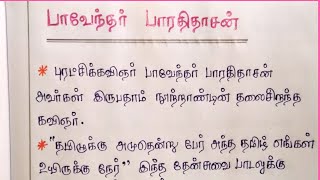 பாவேந்தர் பாரதிதாசன்
* புரட்சிக்கவிஞர் பாவேந்தர் பாரதிதாசன்
அவர்கள் இருபதாம் நூற்றாண்டின் தலைசிறந்த
கவிஞர்.
* "தமிழுக்கு அமுதென்று பேர் அந்த தமிழ் எங்கள்
உயிருக்கு நேர்" இந்த தேன்சுவை பாடலுக்கு